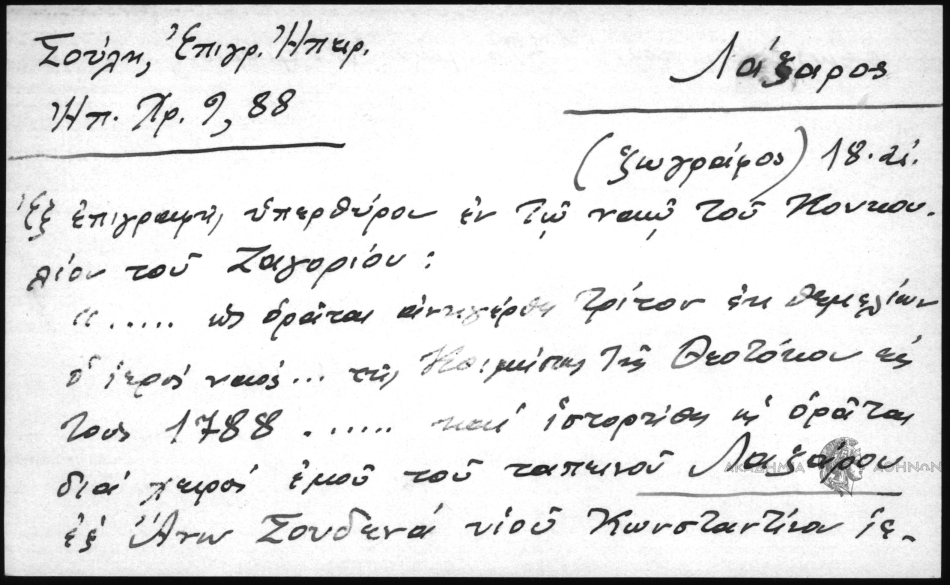 Σούλη, Ἐπιγρ. Ἠπειρ.
Ἠπ. Χρ. 9, 88
Λάζαρος
(ζωγράφος) 18. αἰ.
Ἐξ ἐπιγραφῆς ὑπερθύρου ἐν τῷ ναῷ τοῦ Κουκου-
λίου τοῦ Ζαγορίου:
"..... ὡς ὁρᾶται ἀνηγέρθη τρίτον ἐκ θεμελίων
ὁ ἱερός ναός... τῆς Κοιμήσεως τῆς Θεοτόκου εἰς
τους 1788 ...... καί ἱστορήθη ὡς ὁρᾶται
διά χειρός ἐμοῦ τοῦ ταπεινοῦ Λαζάρου
ἐξ Ἄνω Σουδενά υἱοῦ Κωνσταντίνου ἱε-
ΑΚΑΔΗΜΙΑ ΑΘΗΝΩΝ